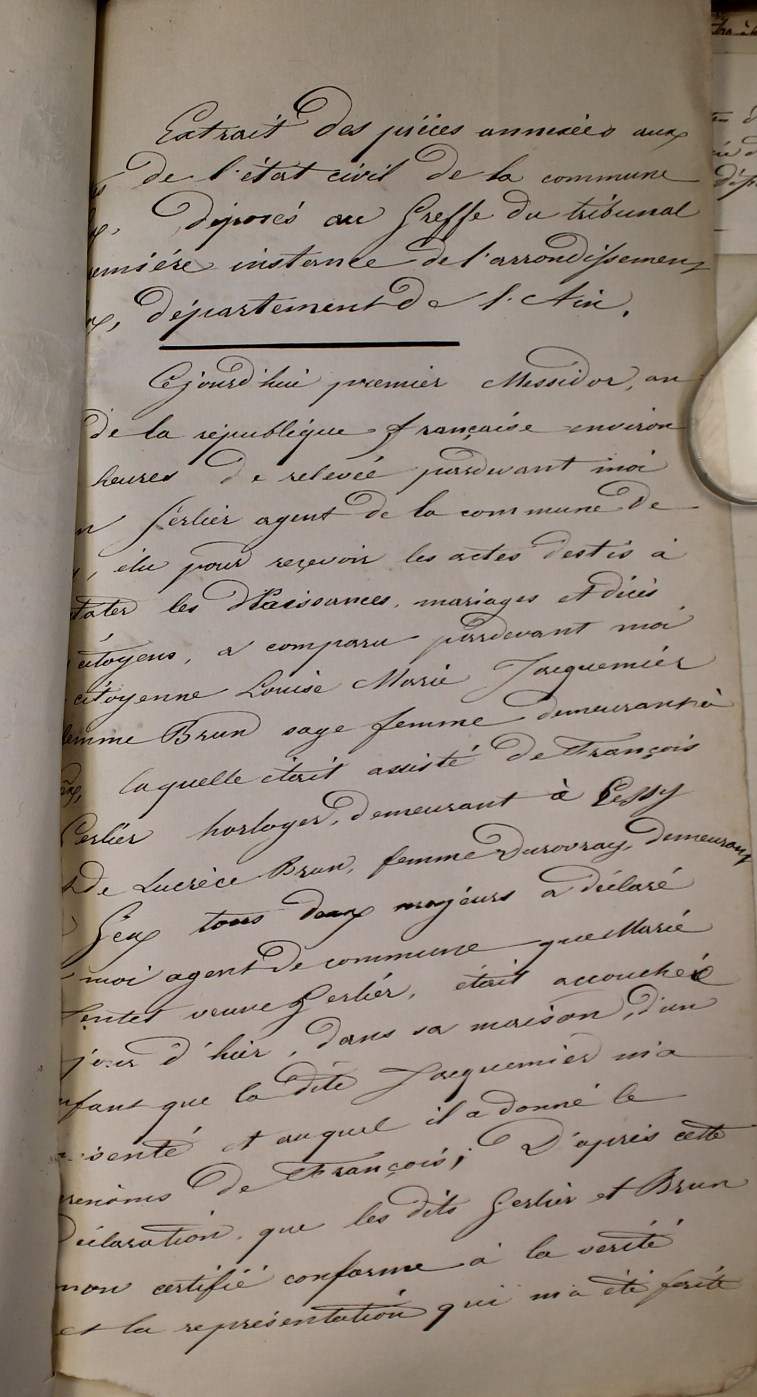 Extrait des pièces annexées aux
de l'état civil de la commune
déposés au Greffe du tribunal
emière instance de l'arrondissement
département de l'Ain.
Cejourd'hui premier Messidor, an
de la république française environ
heures de relevée pardevant moi
Gerlier agent de la commune de
élu pour reçevoir les actes destis à
tater les Naissances, mariages et décès
citoyens, a comparu pardevant moi
citoyenne Louise Marie Jacquemiér
femme Brun sage femme demeurant à
laquelle était assisté de François
Gerlier horloger, demeurant à Cessy
de Lucrèce Brun, femme Duvovray, demeurant
Gex tous deux majeurs a déclaré
moi agent de commune que Marie
veuve Gerliér, était accouchée
jour d'hier, dans sa maison, d'un
nfant que la dite Jacquemiér m'a
senté et auquel il a donné le
prénoms de François; D'après cette
déclaration, que les dits Gerlier et Brun
mon certifié conforme à la verité
et la représentation qui m'a été faite